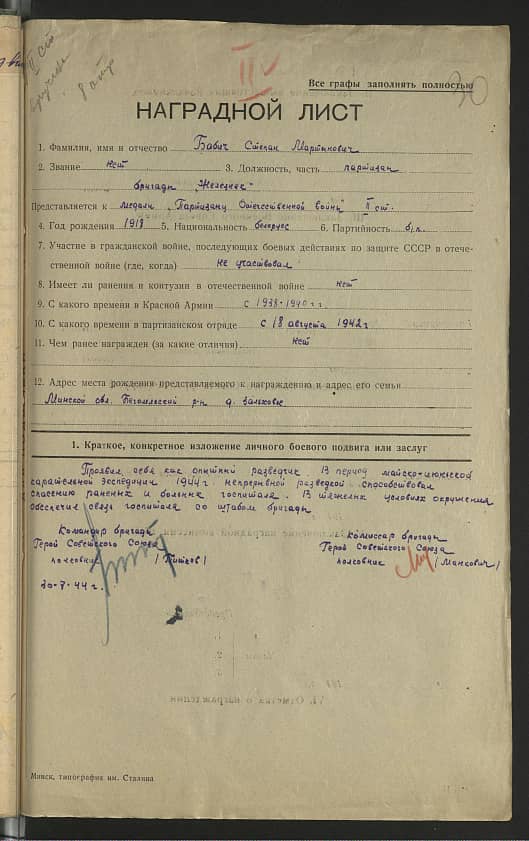 II ст
II
30
Все графы заполнять полностью
НАГРАДНОЙ ЛИСТ
1. Фамилия, имя и отчество Бабич Степан Мартынович
2. Звание нет 3. Должность, часть партизан
бригады "Железняк"
Представляется к медали "Партизану Отечественной войны" II ст.
4. Год рождения 1918 5. Национальность белорус 6. Партийность б/п.
7. Участие в гражданской войне, последующих боевых действиях по защите СССР в отече-
ственной войне (где, когда) не участвовал
8. Имеет ли ранения и контузии в отечественной войне нет
9. С какого времени в Красной Армии с 1938-1940 г г
10. С какого времени в партизанском отряде с 18 августа 1942 г
11. Чем ранее награжден (за какие отличия) нет
12. Адрес места рождения представляемого к награждению и адрес его семьи
Минской обл. Бегомльский р-н д.
1. Краткое, конкретное изложение личного боевого подвига или заслуг
Проявил себя как опытный разведчик. В период майско-июньской
карательной экспедиции 1944 г. непрерывной разведкой способствовал
спасению раненых и больных госпиталя. В тяжелых условиях окружения
обеспечил связь госпиталя со штабом бригады
Командир бригады Комиссар бригады
Герой Советского Союза Герой Советского Союза
полковник /Титков/ полковник /Манкович/
30-7-44 г.
VI. Отметка о награждении
Минск, типография им. Сталина